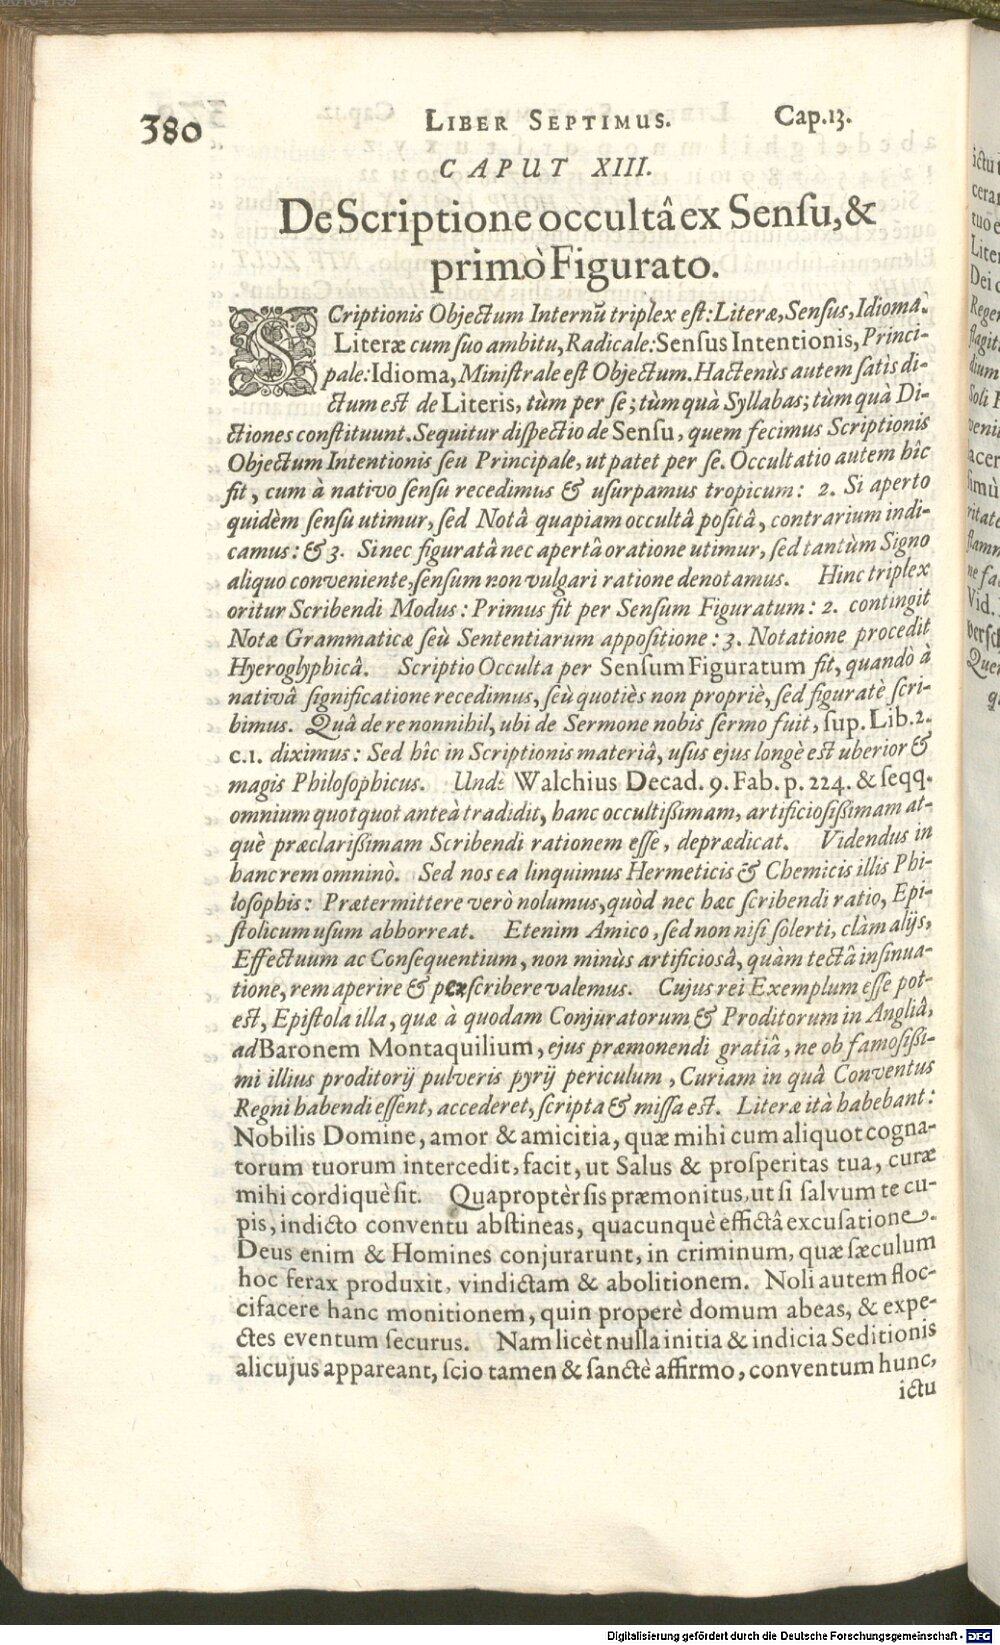 380 LIBER SEPTIMUS. Cap.13.
CAPUT XIII.
De Scriptione occultâ ex Sensu, &
primò Figurato.
SCriptionis Objectum Internũ triplex est: Literæ, Sensus, Idioma.
Literæ cum suo ambitu, Radicale: Sensus Intentionis, Princi-
pale: Idioma, Ministrale est Objectum. Hactenùs autem satìs di-
ctum est de Literis, tùm per se; tùm quà Syllabas; tùm quà Di-
ctiones constituunt. Sequitur dispectio de Sensu, quem fecimus Scriptionis
Objectum Intentionis seu Principale, ut patet per se. Occultatio autem hîc
fit, cum à nativo sensu recedimus & usurpamus tropicum: 2. Si aperto
quidèm sensu utimur, sed Notâ quapiam occultâ positâ, contrarium indi-
camus: & 3. Si nec figuratâ nec apertâ oratione utimur, sed tantùm Signo
aliquo conveniente, sensum non vulgari ratione denotamus. Hinc triplex
oritur Scribendi Modus: Primus fit per Sensum Figuratum: 2. contingit
Notæ Grammaticæ seù Sententiarum appositione: 3. Notatione procedit
Hyeroglyphicâ. Scriptio Occulta per Sensum Figuratum fit, quandò à
nativâ significatione recedimus, seù quotiès non propriè, sed figuratè scri-
bimus. Quâ de re nonnihil, ubi de Sermone nobis sermo fuit, sup. Lib. 2.
c.1. diximus: Sed hîc in Scriptionis materiâ, usus ejus longè est uberior &
magis Philosophicus. Unde Walchius Decad. 9. Fab. p. 224. & seqq.
omnium quotquot anteà tradidit, hanc occultißimam, artificiosißimam at-
què præclarißimam Scribendi rationem esse, deprædicat. Videndus in
hanc rem omninò. Sed nos ea linquimus Hermeticis & Chemicis illis Phi-
losophis: Prætermittere verò nolumus, quòd nec hæc scribendi ratio, Epi-
stolicum usum abhorreat. Etenim Amico, sed non nisi solerti, clàm alijs,
Effectuum ac Consequentium, non minùs artificiosâ, quàm tectâ insinua-
tione, rem aperire & perscribere valemus. Cujus rei Exemplum esse pot-
est, Epistola illa, quæ à quodam Conjuratorum & Proditorum in Angliâ,
ad Baronem Montaquilium, ejus præmonendi gratiâ, ne ob famosißi-
mi illius proditorij pulveris pyrij periculum, Curiam in quâ Conventus
Regni habendi essent, accederet, scripta & missa est. Literæ ità habebant:
Nobilis Domine, amor & amicitia, quæ mihi cum aliquot cogna-
torum tuorum intercedit, facit, ut Salus & prosperitas tua, curæ
mihi cordiquè sit. Quaproptèr sis præmonitus, ut si salvum te cu-
pis, indicto conventu abstineas, quacunquè effictâ excusatione.
Deus enim & Homines conjurarunt, in criminum, quæ sæculum
hoc ferax produxit, vindictam & abolitionem. Noli autem floc-
cifacere hanc monitionem, quin properè domum abeas, & expe-
ctes eventum securus. Nam licèt nulla initia & indicia Seditionis
alicujus appareant, scio tamen & sanctè affirmo, conventum hunc,
ictu
Digitalisierung gefördert durch die Deutsche Forschungsgemeinschaft - DFG